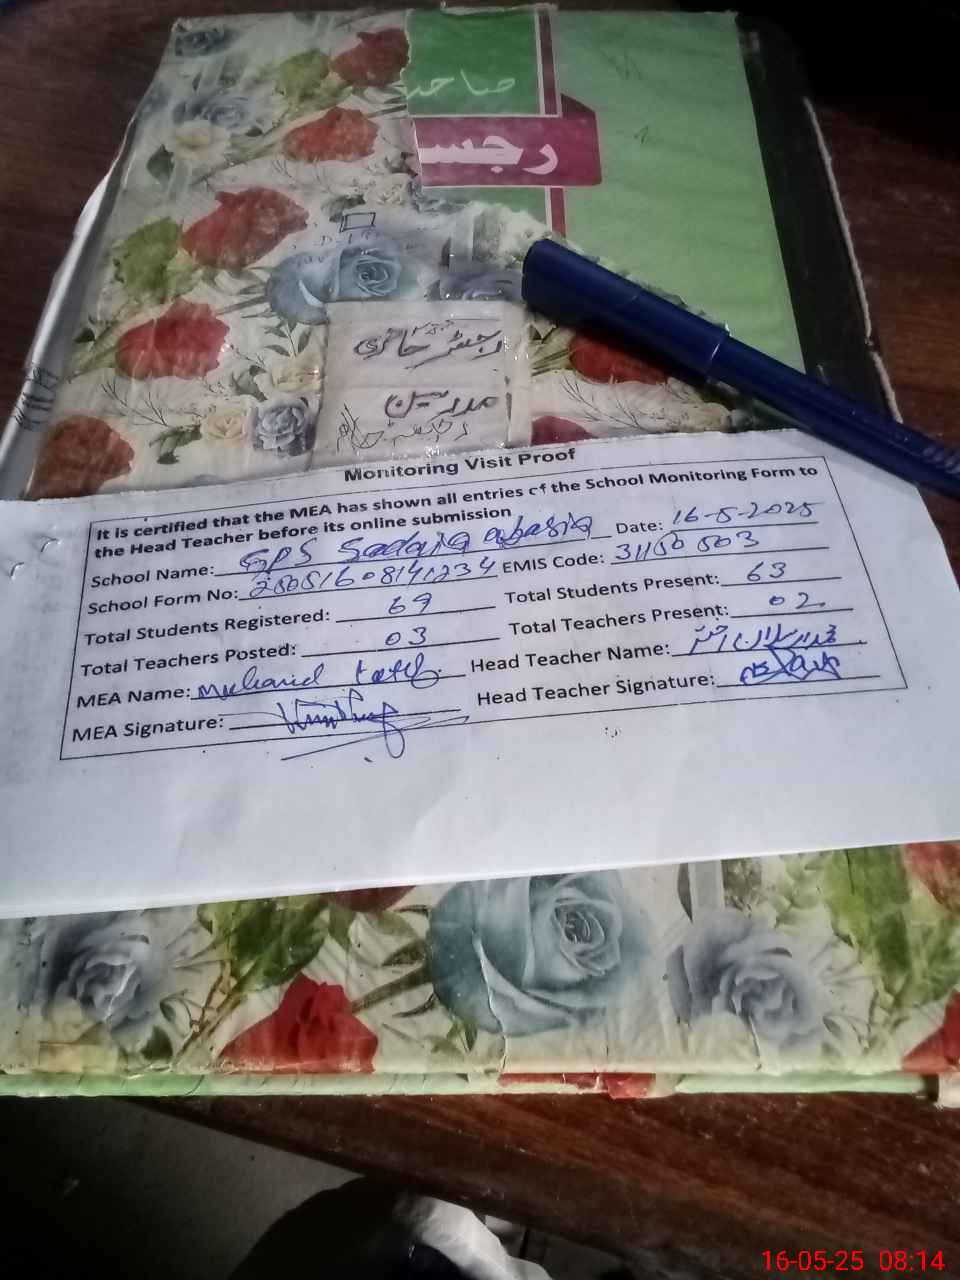 صاحب
رجسـ
رجسٹر حاضری
مدرسین
Monitoring Visit Proof
It is certified that the MEA has shown all entries of the School Monitoring Form to
the Head Teacher before its online submission
School Name: GPS Sadaiq abasia Date: 16-5-2025
School Form No: EMIS Code: 31150503
Total Students Registered: 69 Total Students Present: 63
Total Teachers Posted: 03 Total Teachers Present: 02
MEA Name: Head Teacher Name:
MEA Signature: Head Teacher Signature:
16-05-25 08:14